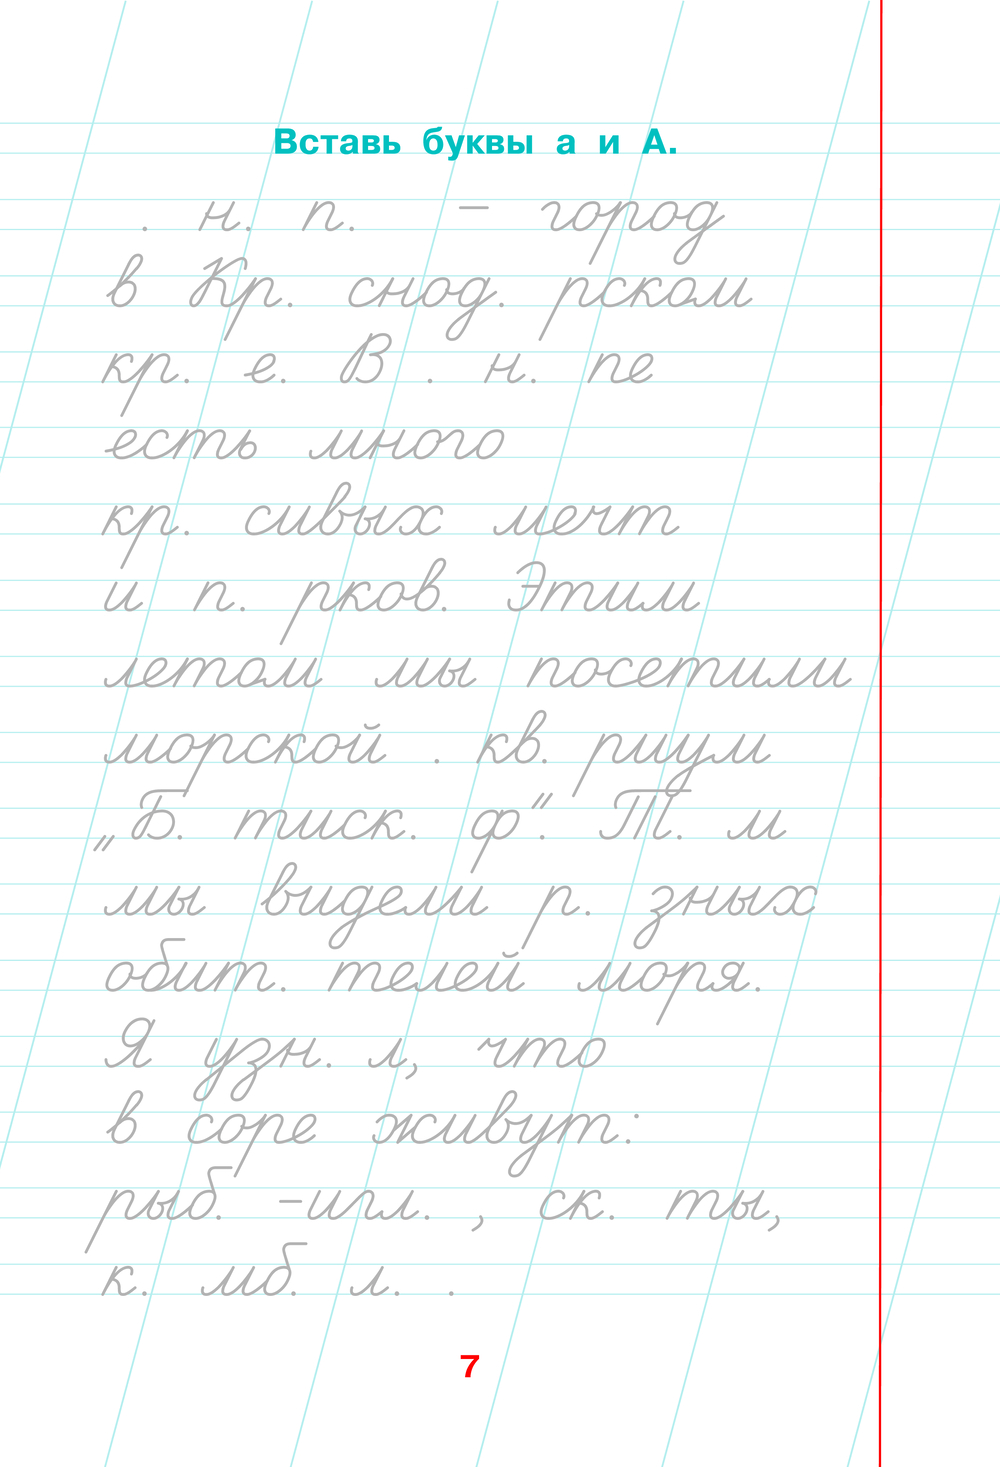 Вставь буквы а и А.
. н. п. – город
в Кр. снод. рском
кр. е. В . н. пе
есть много
кр. сивых мечт
и п. рков. Этим
летом мы посетили
морской . кв. риум
„Б. тиск. ф“. Т. м
мы видели р. зных
обит. телей моря.
Я узн. л, что
в соре живут:
рыб. -игл. , ск. ты,
к. мб. л. .
7